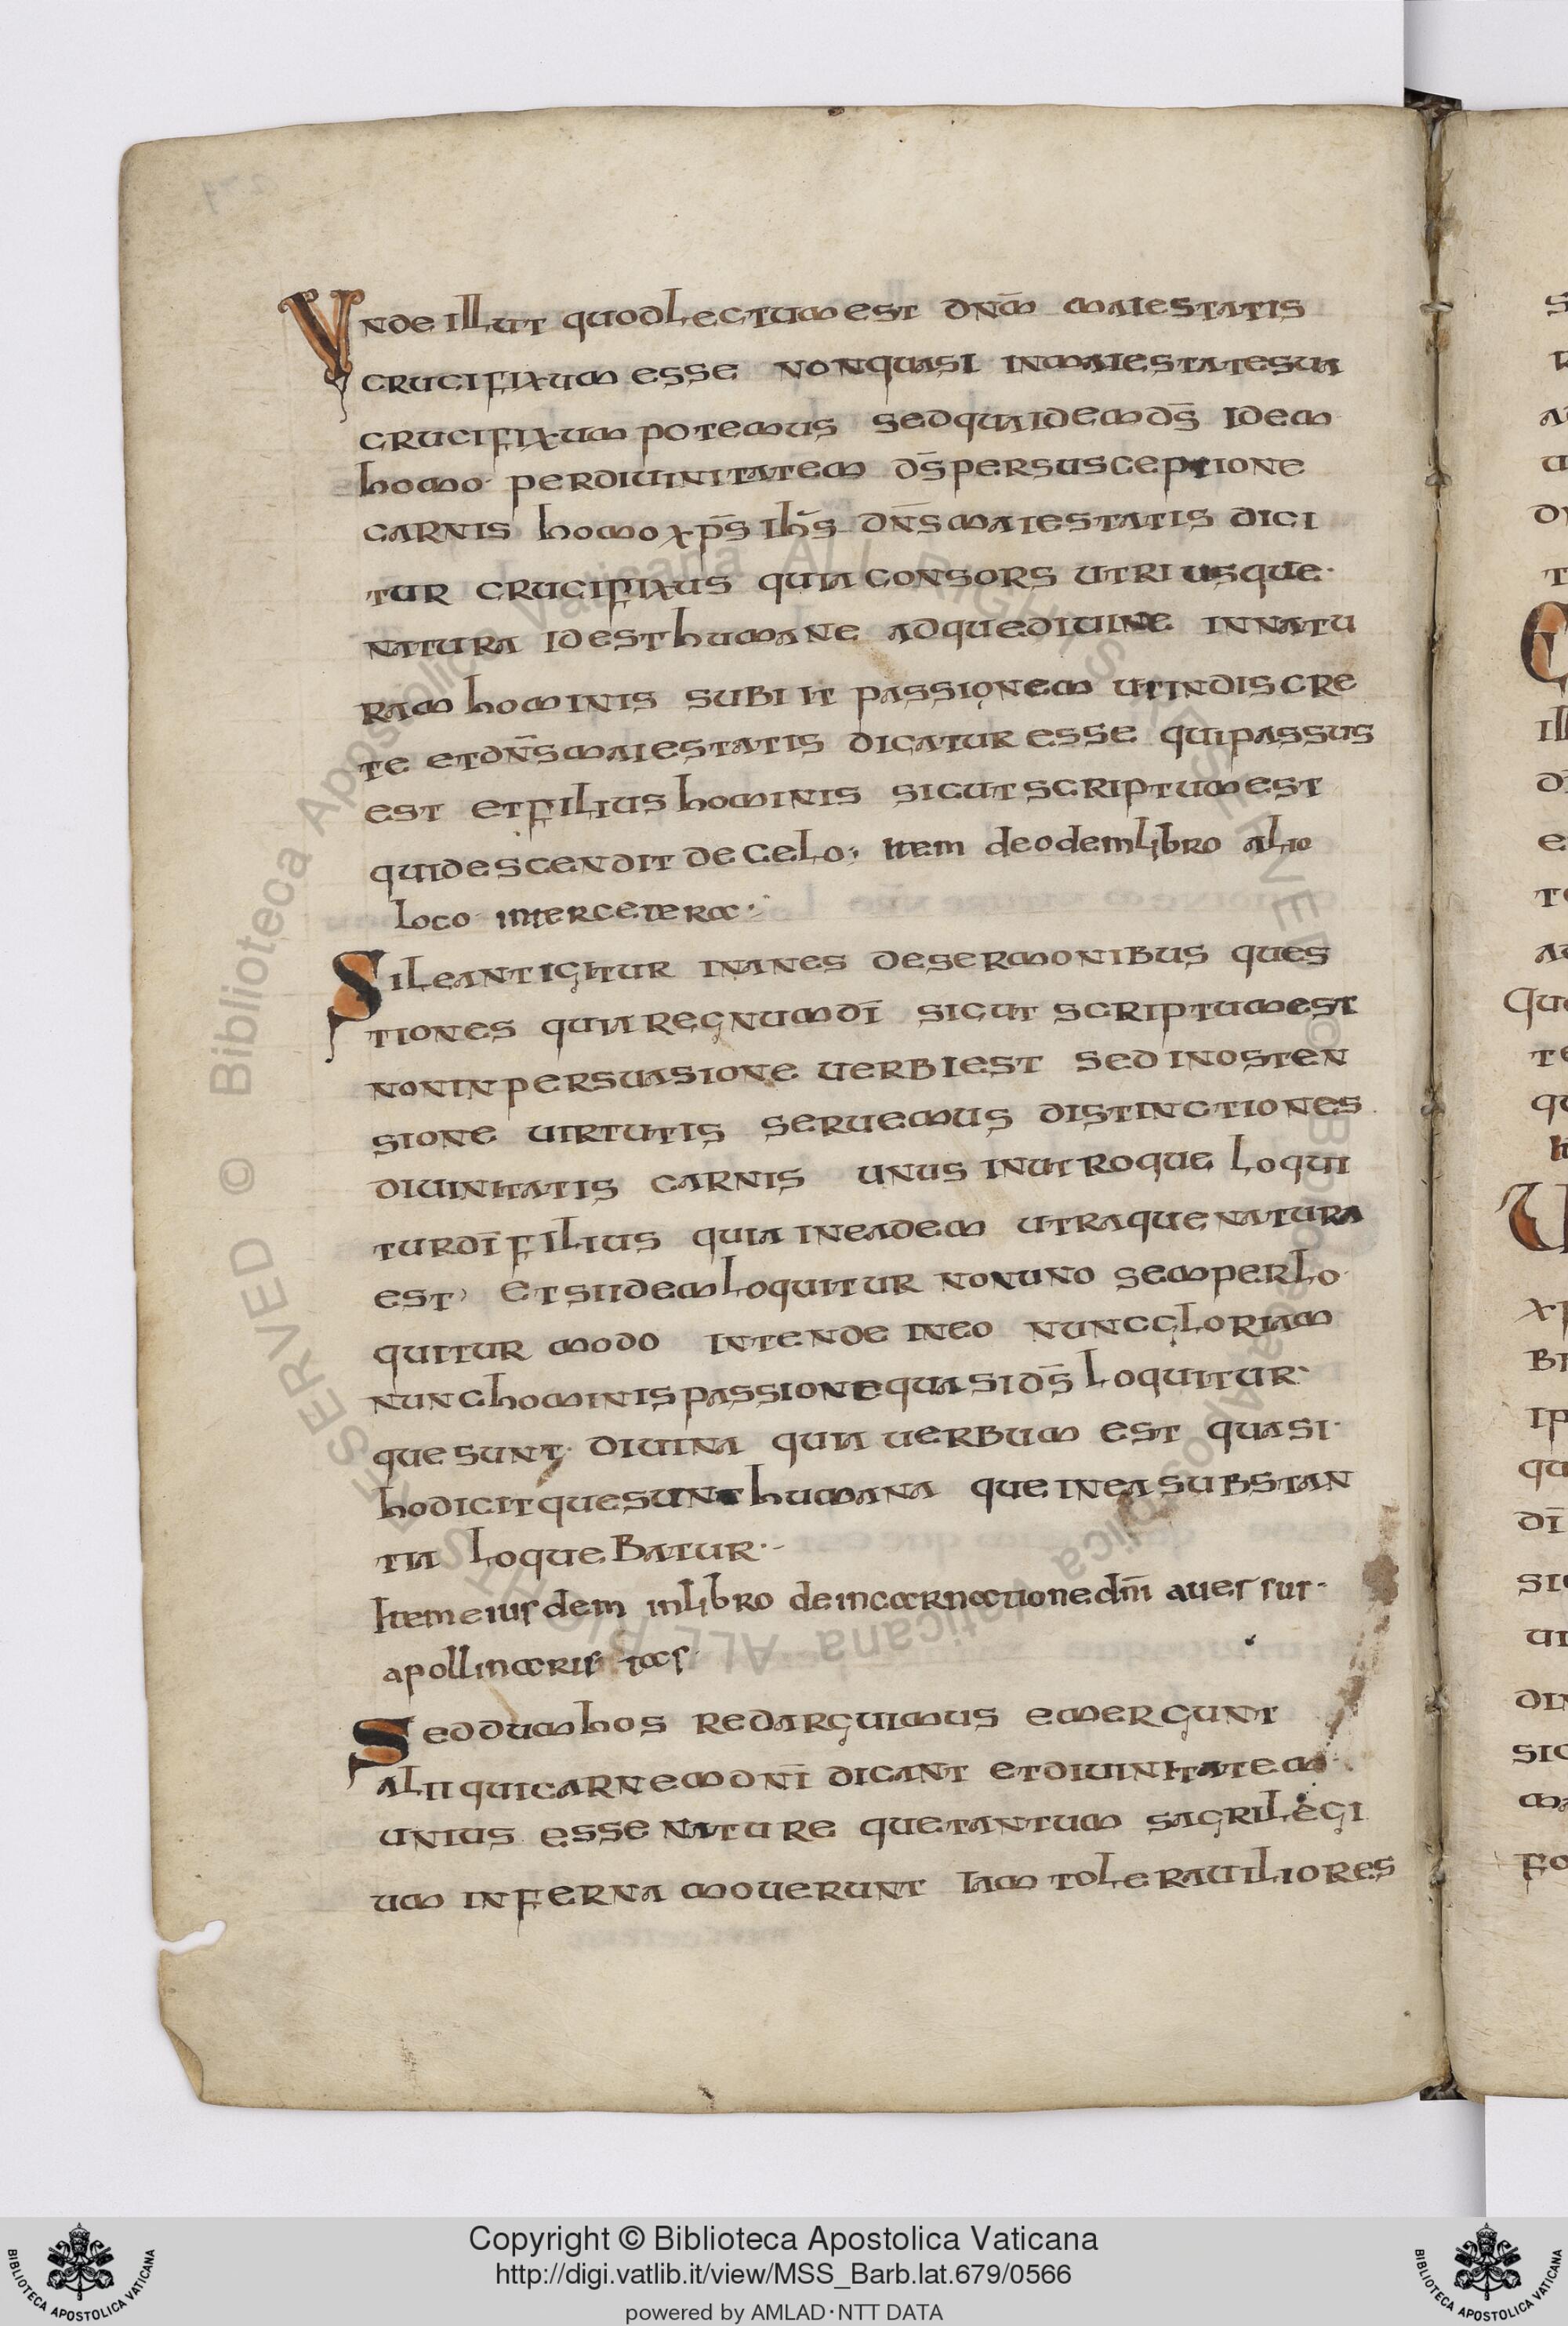 Unde illut quod lectum est dnm̄ maiestatis
crucifixum esse non quasi in maiestate sua
crucifixum potemus sed qua idem ds̄ idem
homo per diuinitatem ds̄ per susceptione
carnis homo xps̄ ihs̄ dns̄ maiestatis dici
tur crucifixus quia consors utriusque·
natura id est humane adque diuine in natu
ram hominis subiit passionem ut indiscre
te et dns̄ maiestatis dicatur esse qui passus
est et filius hominis sicut scriptum est
qui descendit de celo; item de odem libro alio
loco inter cetera·:
Sileant igitur inanes de sermonibus ques
tiones quia regnum dī sicut scriptum est
non in persuasione uerbi est sed in osten
sione uirtutis seruemus distinctiones
diuinitatis carnis unus in utroque loqui
tur dī filius quia in eadem utraque natura
est, et si idem loquitur non uno semper lo
quitur modo intende in eo nunc gloriam
nunc hominis passione quasi ds̄ loquitur·
que sunt· diuina quia uerbum est quasi·
ho dicit que sunt humana que in ea substan
tia loquebatur·-
Item eiusdem in libro de incarnatione dnī auersus·
apollinaris tas·
Sed dum hos redarguimus emergunt
alii qui carnem dnī dicant et diuinitatem·
unius esse nature que tantum sacrilegi
um inferna mouerunt iam tolerauiliores
Copyright © Biblioteca Apostolica Vaticana
http://digi.vatlib.it/view/MSS_Barb.lat.679/0566
powered by AMLAD·NTT DATA